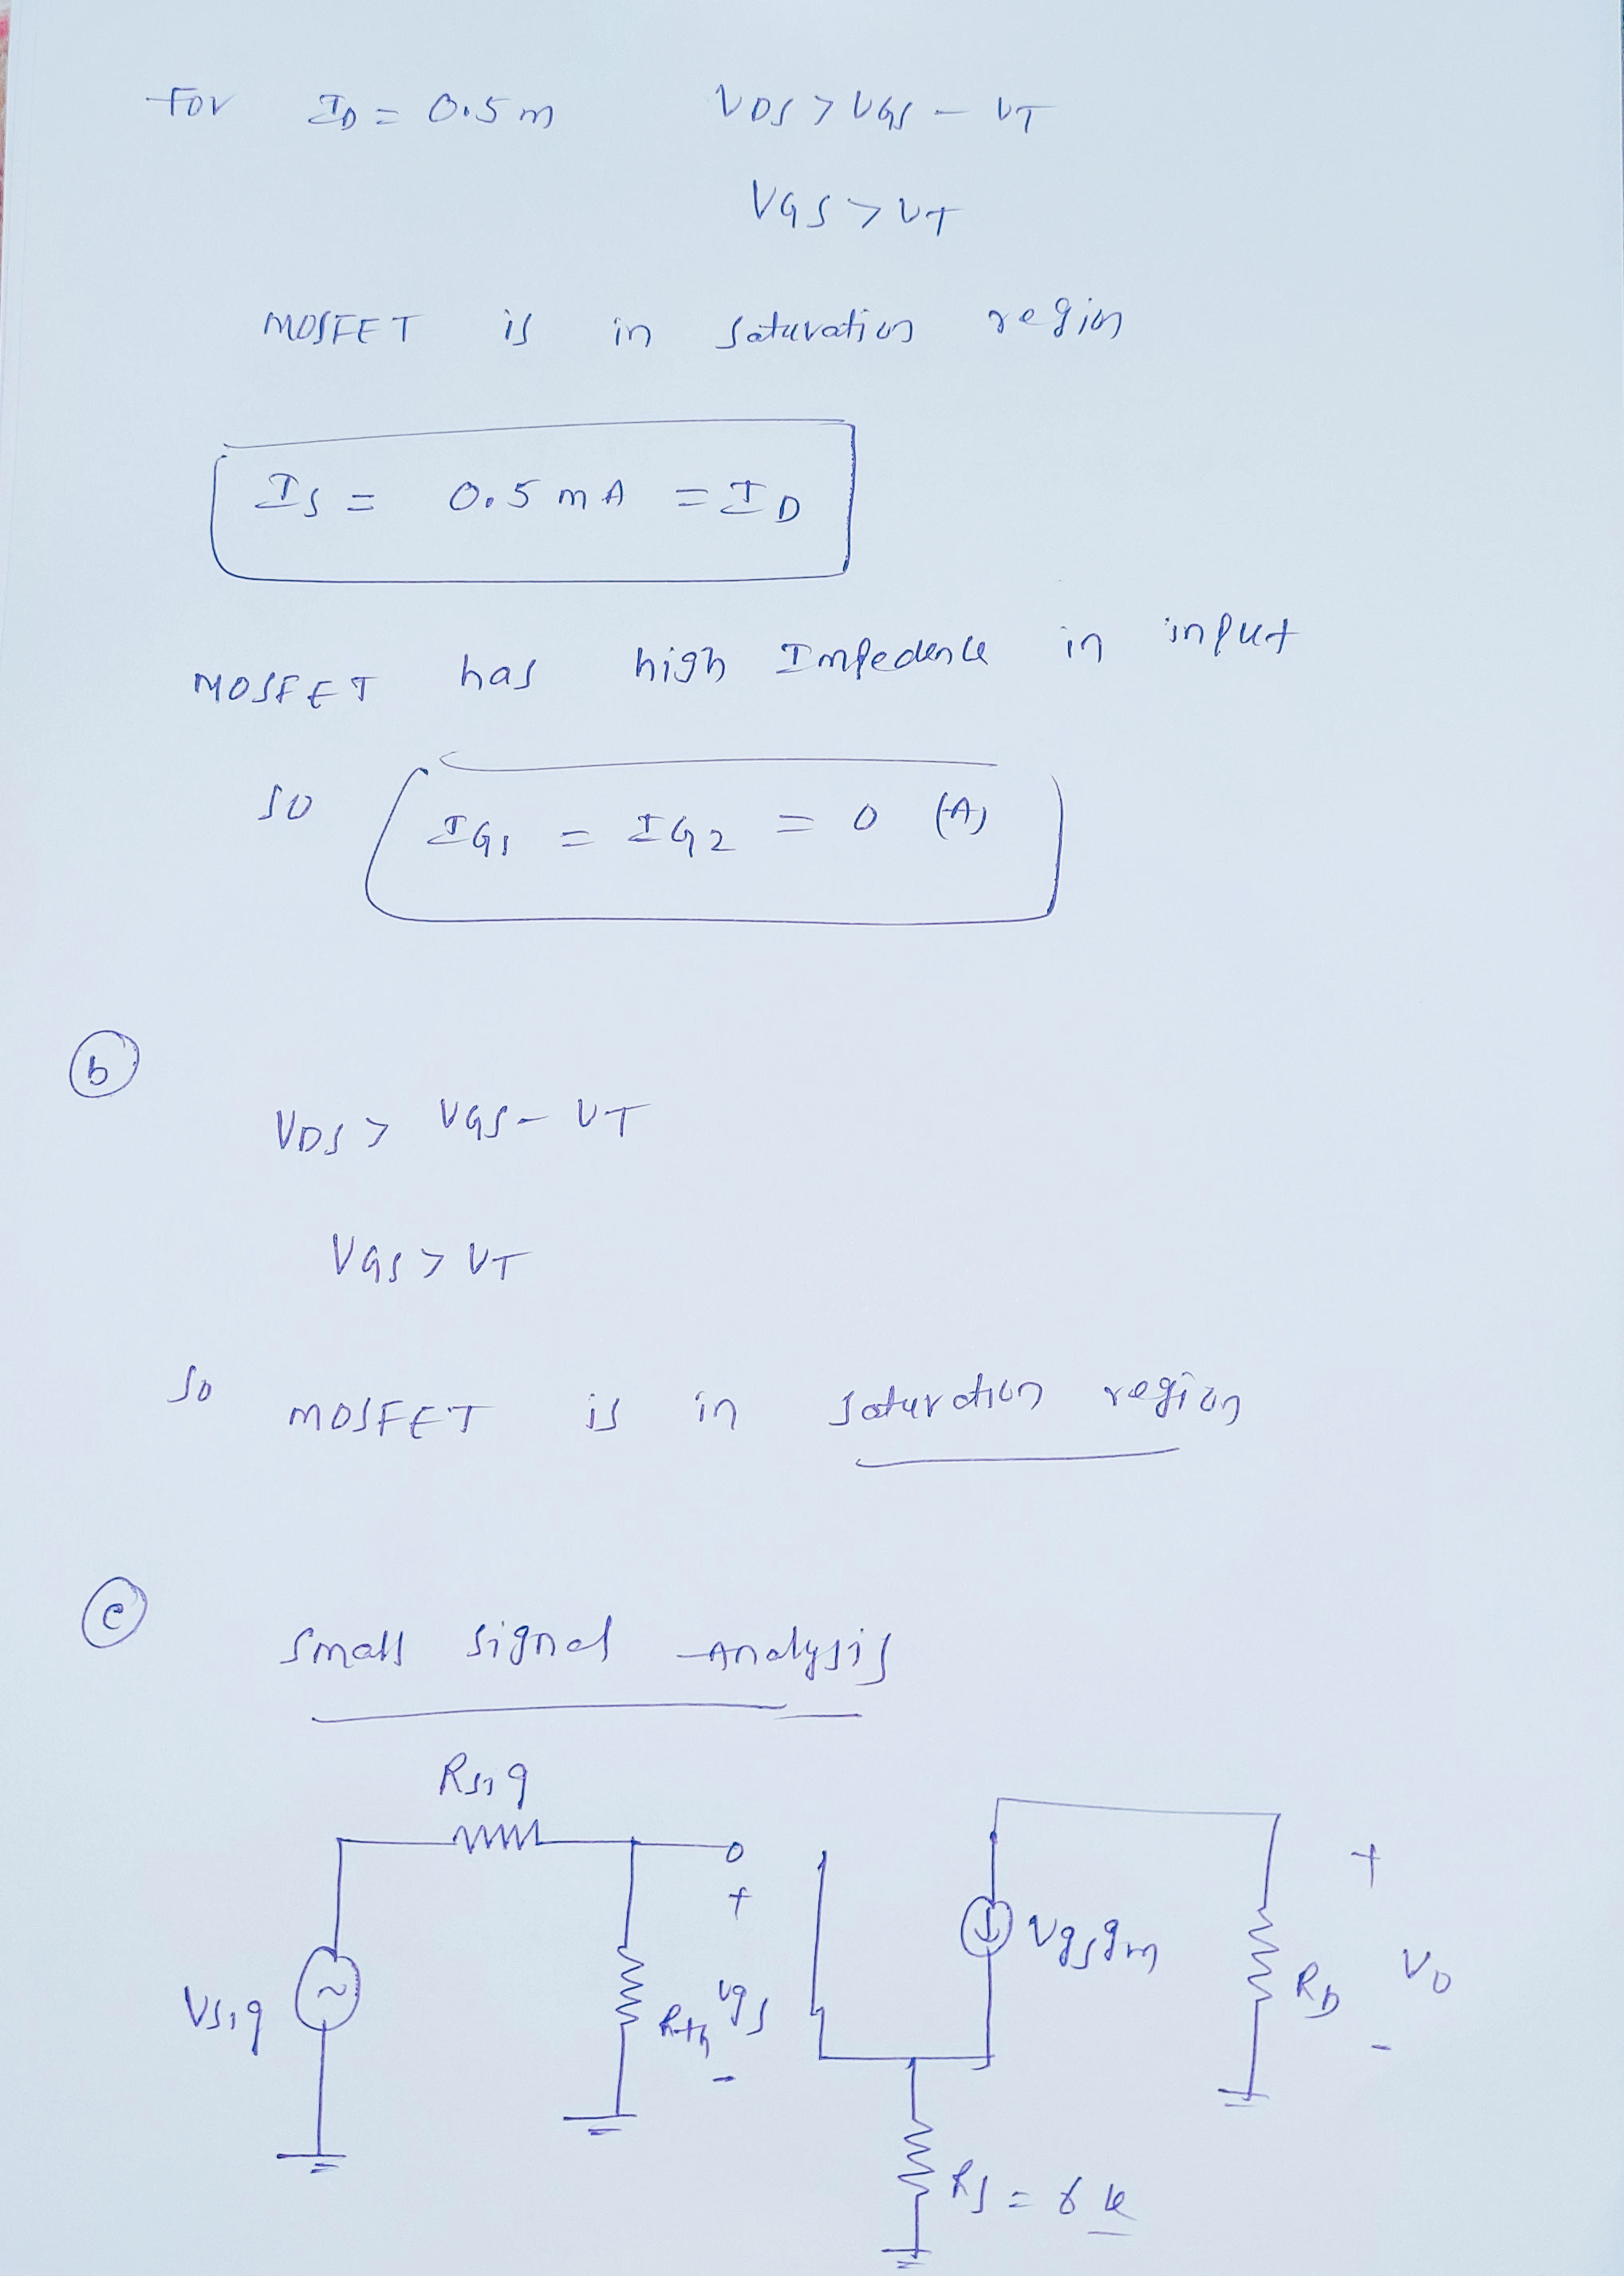 For ID = 0.5 m VDS > VGS - VT
VGS > VT
MOSFET is in saturation region
IS = 0.5 mA = ID
MOSFET has high Impedence in input
so IG1 = IG2 = 0 (A)
b
VDS > VGS - VT
VGS > VT
So MOSFET is in saturation region
c
Small signal Analysis
Rsig
+ +
Vgsgm
Vsig Rth vgs RD Vo
- -
RS = 6 k